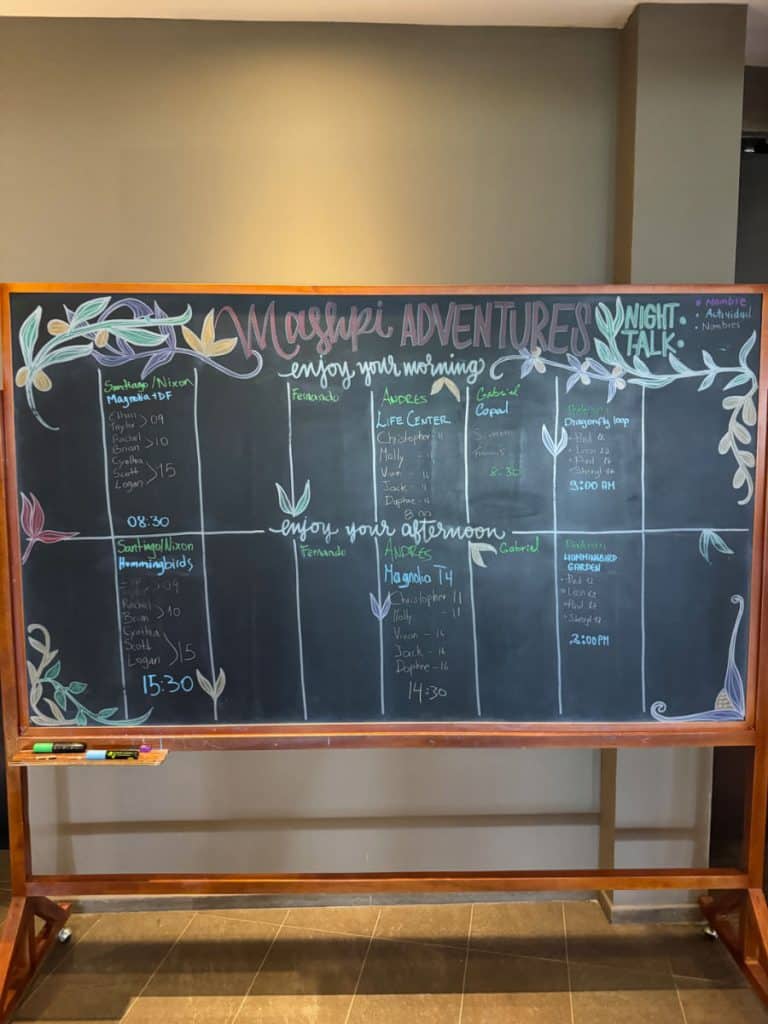 Mashpi ADVENTURES
NIGHT TALK
Nombre
Actividad
Nombres
enjoy your morning
Santiago/Nixon
Magnolia + DF
Ethan
Taylor > 09
Rachel
Brian > 10
Cynthia
Scott > 15
Logan
08:30
Fernando
ANDRES
LIFE CENTER
Christopher - 11
Molly
Vivian - 16
Jack - 16
Daphne - 16
8:00
Gabriel
Copal
8:30
Dragonfly loop
Leon 12
Sheryl
9:00 AM
enjoy your afternoon
Santiago/Nixon
Hummingbirds
> 09
Rachel
Brian > 10
Cynthia
Scott > 15
Logan
15:30
Fernando
ANDRES
Magnolia T4
Christopher 11
Molly - 11
Vivian - 16
Jack - 16
Daphne - 16
14:30
Gabriel
HUMMINGBIRD
GARDEN
Leon 12
Sheryl
2:00 PM